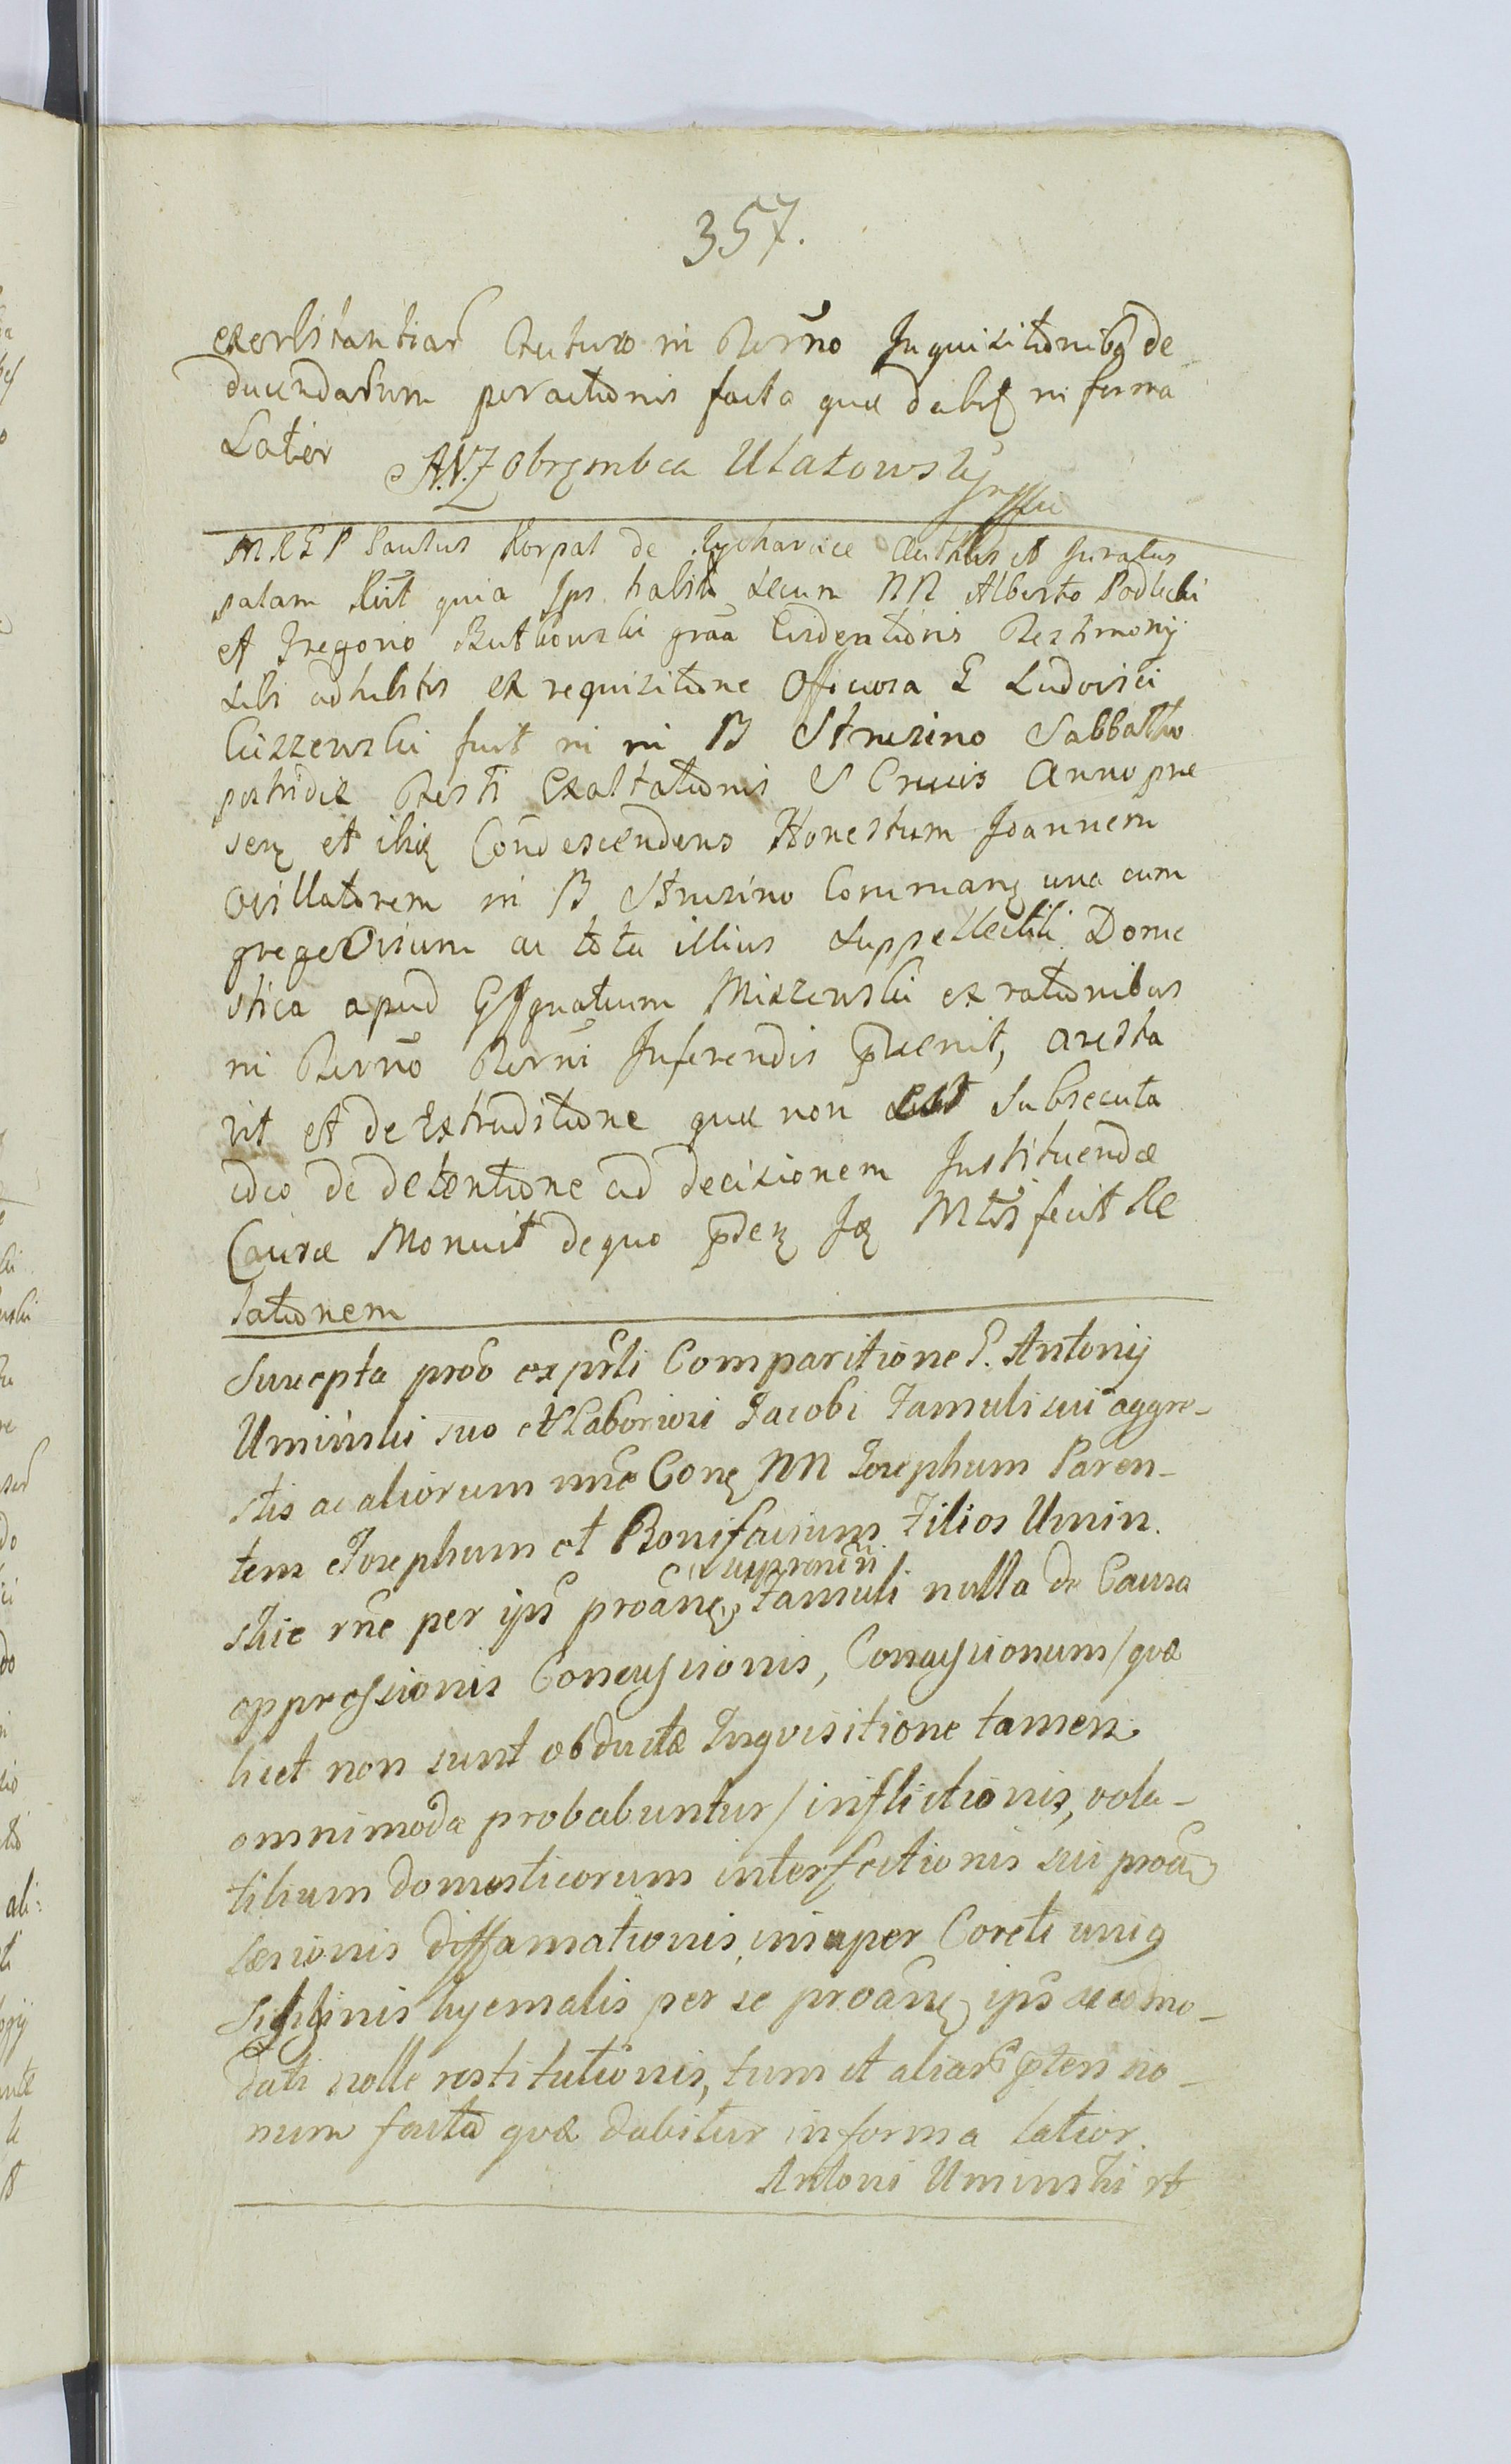 357.
exorbitantiar futuro in Termno Inquisitionibq de
ducendarum peractionis facta quæ dabit in forma
Latior A.N.Z Obrembca Ulatowsky
M R G P Paulus Korpal de Rycharcice Authus et Juratus
palam Rlit quia Ips habit secum NN Alberto Podlecki
et Gregorio Rutkowski graa Evidentionis Testimonij
sibi adhibitis ex requisitione Officiosa G Ludovici
Ciszewski fuit in in B Strusino Sabbatho
postridie Festi Exaltationis S Crucis Anno præ
sen et ibiq Condescendens Honestum Joannem
Ovillatorem in B Strusino Commann una cum
grege Ovium ac tota illius Suppellectili Dome
stica apud G Ignatium Miszewski ex rationibus
in Termno Termni Inferendis pvenit, aresta
vit et de Extraditione quæ non est Subsecuta
ideo de detentione ad decisionem Instituendæ
Causæ Monuit de quo pden Iq Mtrs fecit Re
lationem
Suscepta prob ex prti Comparitione G. Antonij
Uminski suo et Laboriosi Jacobi Famuli sui aggre-
stis ac aliorum nne Con NN Josephum Paren-
tem Josephum et Bonifacium Filios Umin.
skie rne per ips proan supranoiti Famuli nulla de Causa
oppressionis Concussionis, Conassionum / quæ
licet non sunt obductæ Inqvisitione tamen
omnimoda probabuntur / inflictionis, vola-
tilium domesticorum interfectionis sui proa
sensionis diffamationis, insuper Coreti uniq
Siliginis hyemalis per se proan ips accomo-
dati nolle restitutionis, tum et aliar pten sio-
num facta quæ dabitur in forma latior.
Antoni Uminski rt